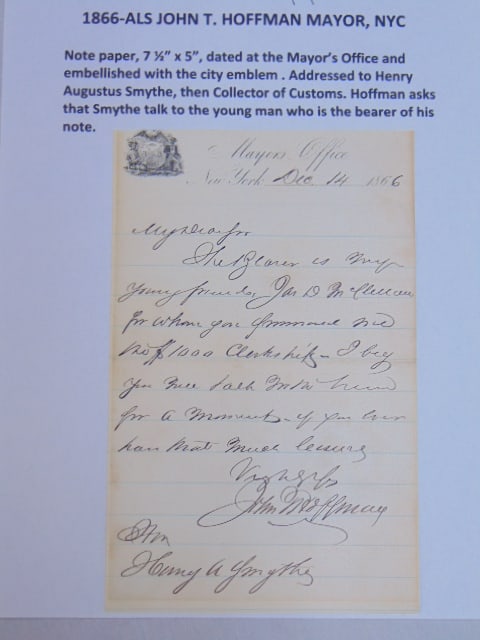 1866-ALS JOHN T. HOFFMAN MAYOR, NYC
Note paper, 7 ½” x 5”, dated at the Mayor’s Office and
embellished with the city emblem . Addressed to Henry
Augustus Smythe, then Collector of Customs. Hoffman asks
that Smythe talk to the young man who is the bearer of his
note.
Mayor's Office
New York Dec 14 1866
My Dear Sir
The Bearer is my
young friend, Jas D McClellan
for whom you promised me
the $1000 Clerkship - I beg
you will talk with him
for a moment - if you ever
have that much leisure
Very truly
John T Hoffman
Hon
Henry A Smythe